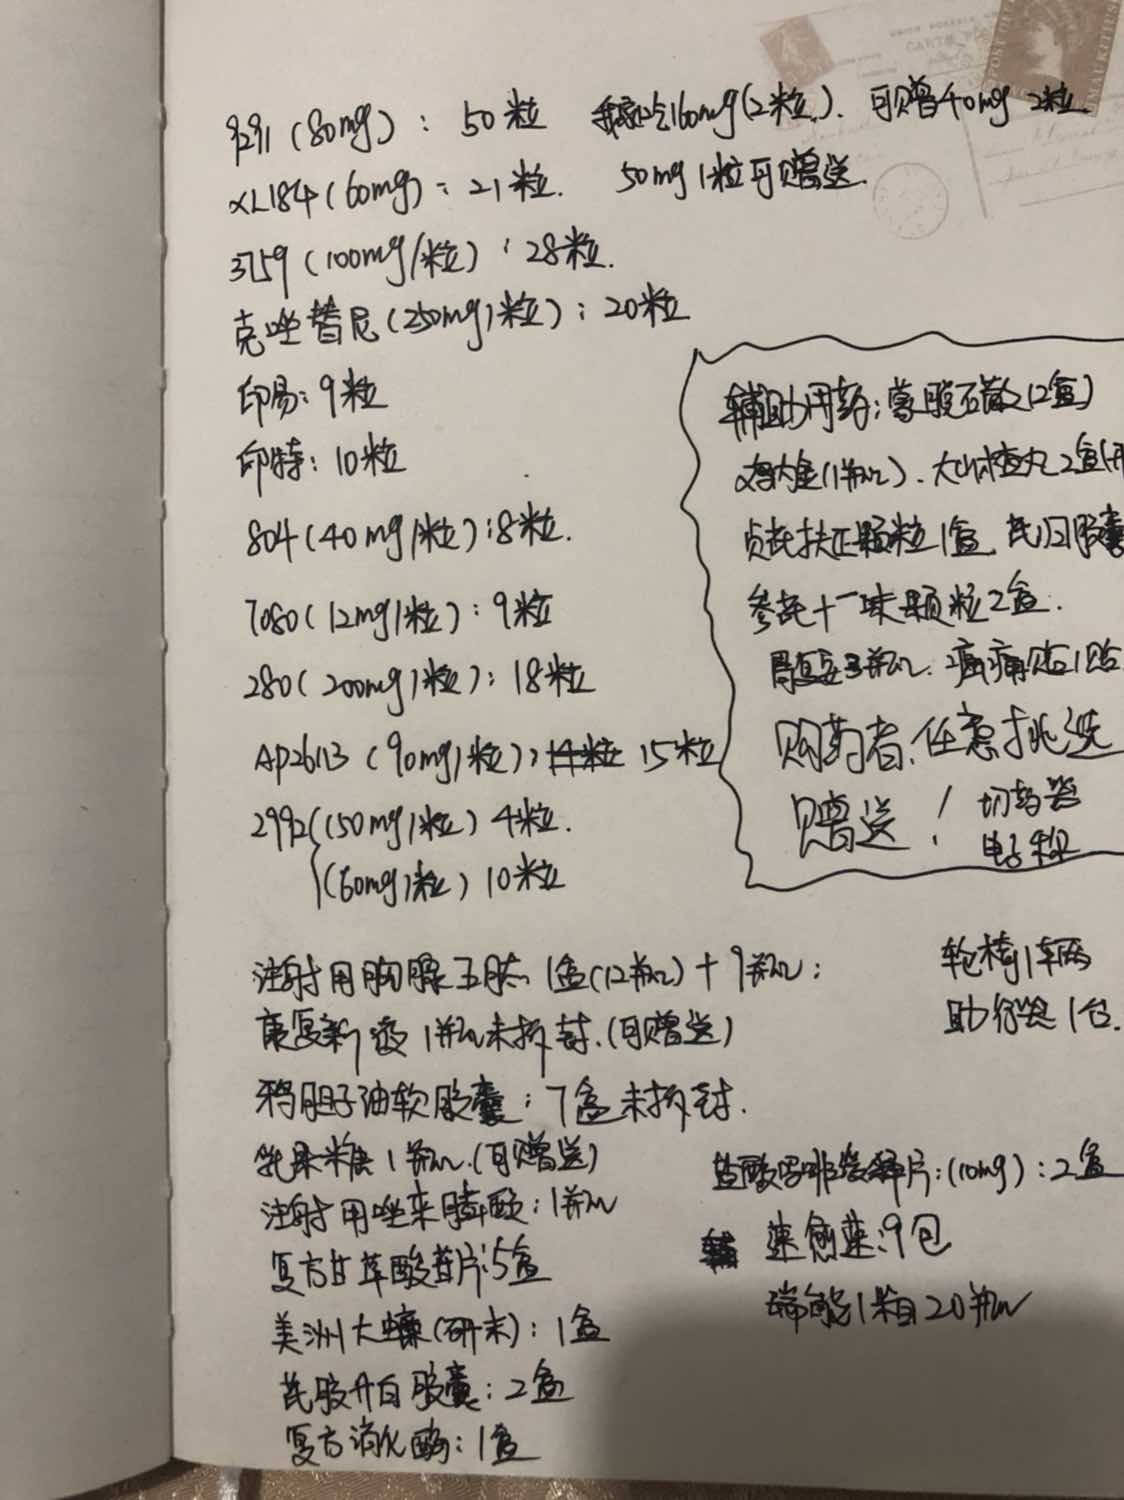 9291 (80mg)：50粒 我家吃160mg(2粒). 可赠40mg 2粒
XL184(60mg)：21粒. 50mg 1粒可赠送.
3759 (100mg/粒)：28粒.
克唑替尼(250mg/粒)：20粒
印易：9粒
印特：10粒
804(40mg/粒)：8粒.
7080(12mg/粒)：9粒
280(200mg/粒)：18粒
AP26113 (90mg/粒)：15粒
2992 (50mg/粒) 4粒.
(60mg/粒) 10粒
辅助用药：蒙脱石散(2盒)
鸡内金(1瓶). 大山楂丸2盒
贞芪扶正颗粒1盒 芪归胶囊
参芪十一味颗粒2盒.
3瓶. 痛贴1贴
购药者,任意挑选
赠送！ 切药器
电子秤
注射用胸腺五肽 1盒(12瓶)+9瓶：
康复新液 1瓶未拆封.(可赠送)
鸦胆子油软胶囊：7盒未拆封.
乳果糖1瓶.(可赠送)
注射用唑来膦酸：1瓶
复方甘草酸苷片：5盒
美洲大蠊(研末)：1盒
芪胶升白胶囊：2盒
复方消化酶：1盒
轮椅1辆
助行器1台.
盐酸吗啡缓释片：(10mg)：2盒
速愈素：9包
瑞能1箱20瓶